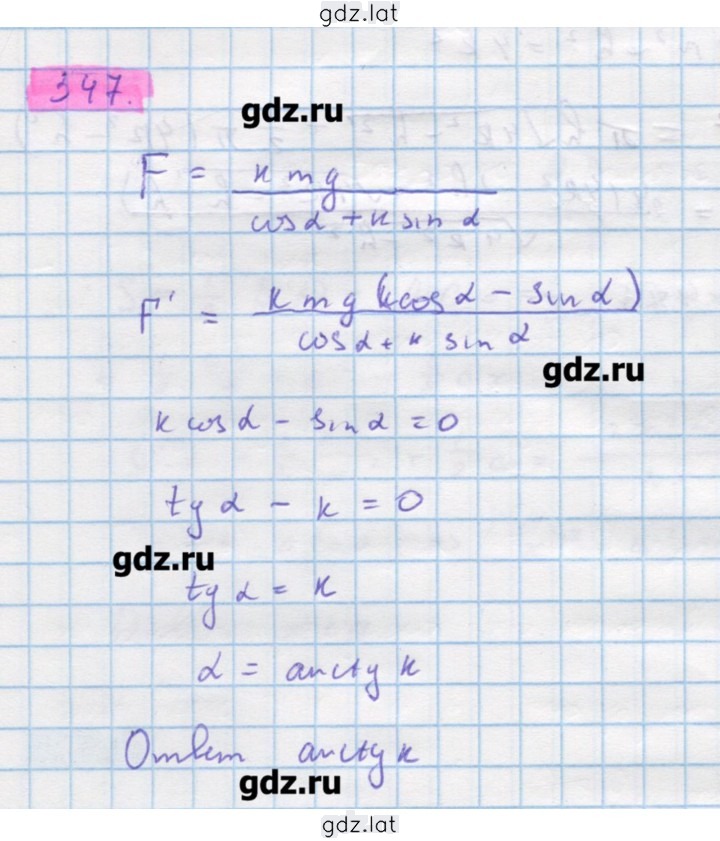 gdz.lat
347.
gdz.ru
F = к m g / cos α + к sin α
F' = к m g (к cos α - sin α) / cos α + к sin α
gdz.ru
к cos α - sin α = 0
tg α - к = 0
gdz.ru
tg α = к
α = arctg к
Ответ arctg к
gdz.ru
gdz.lat